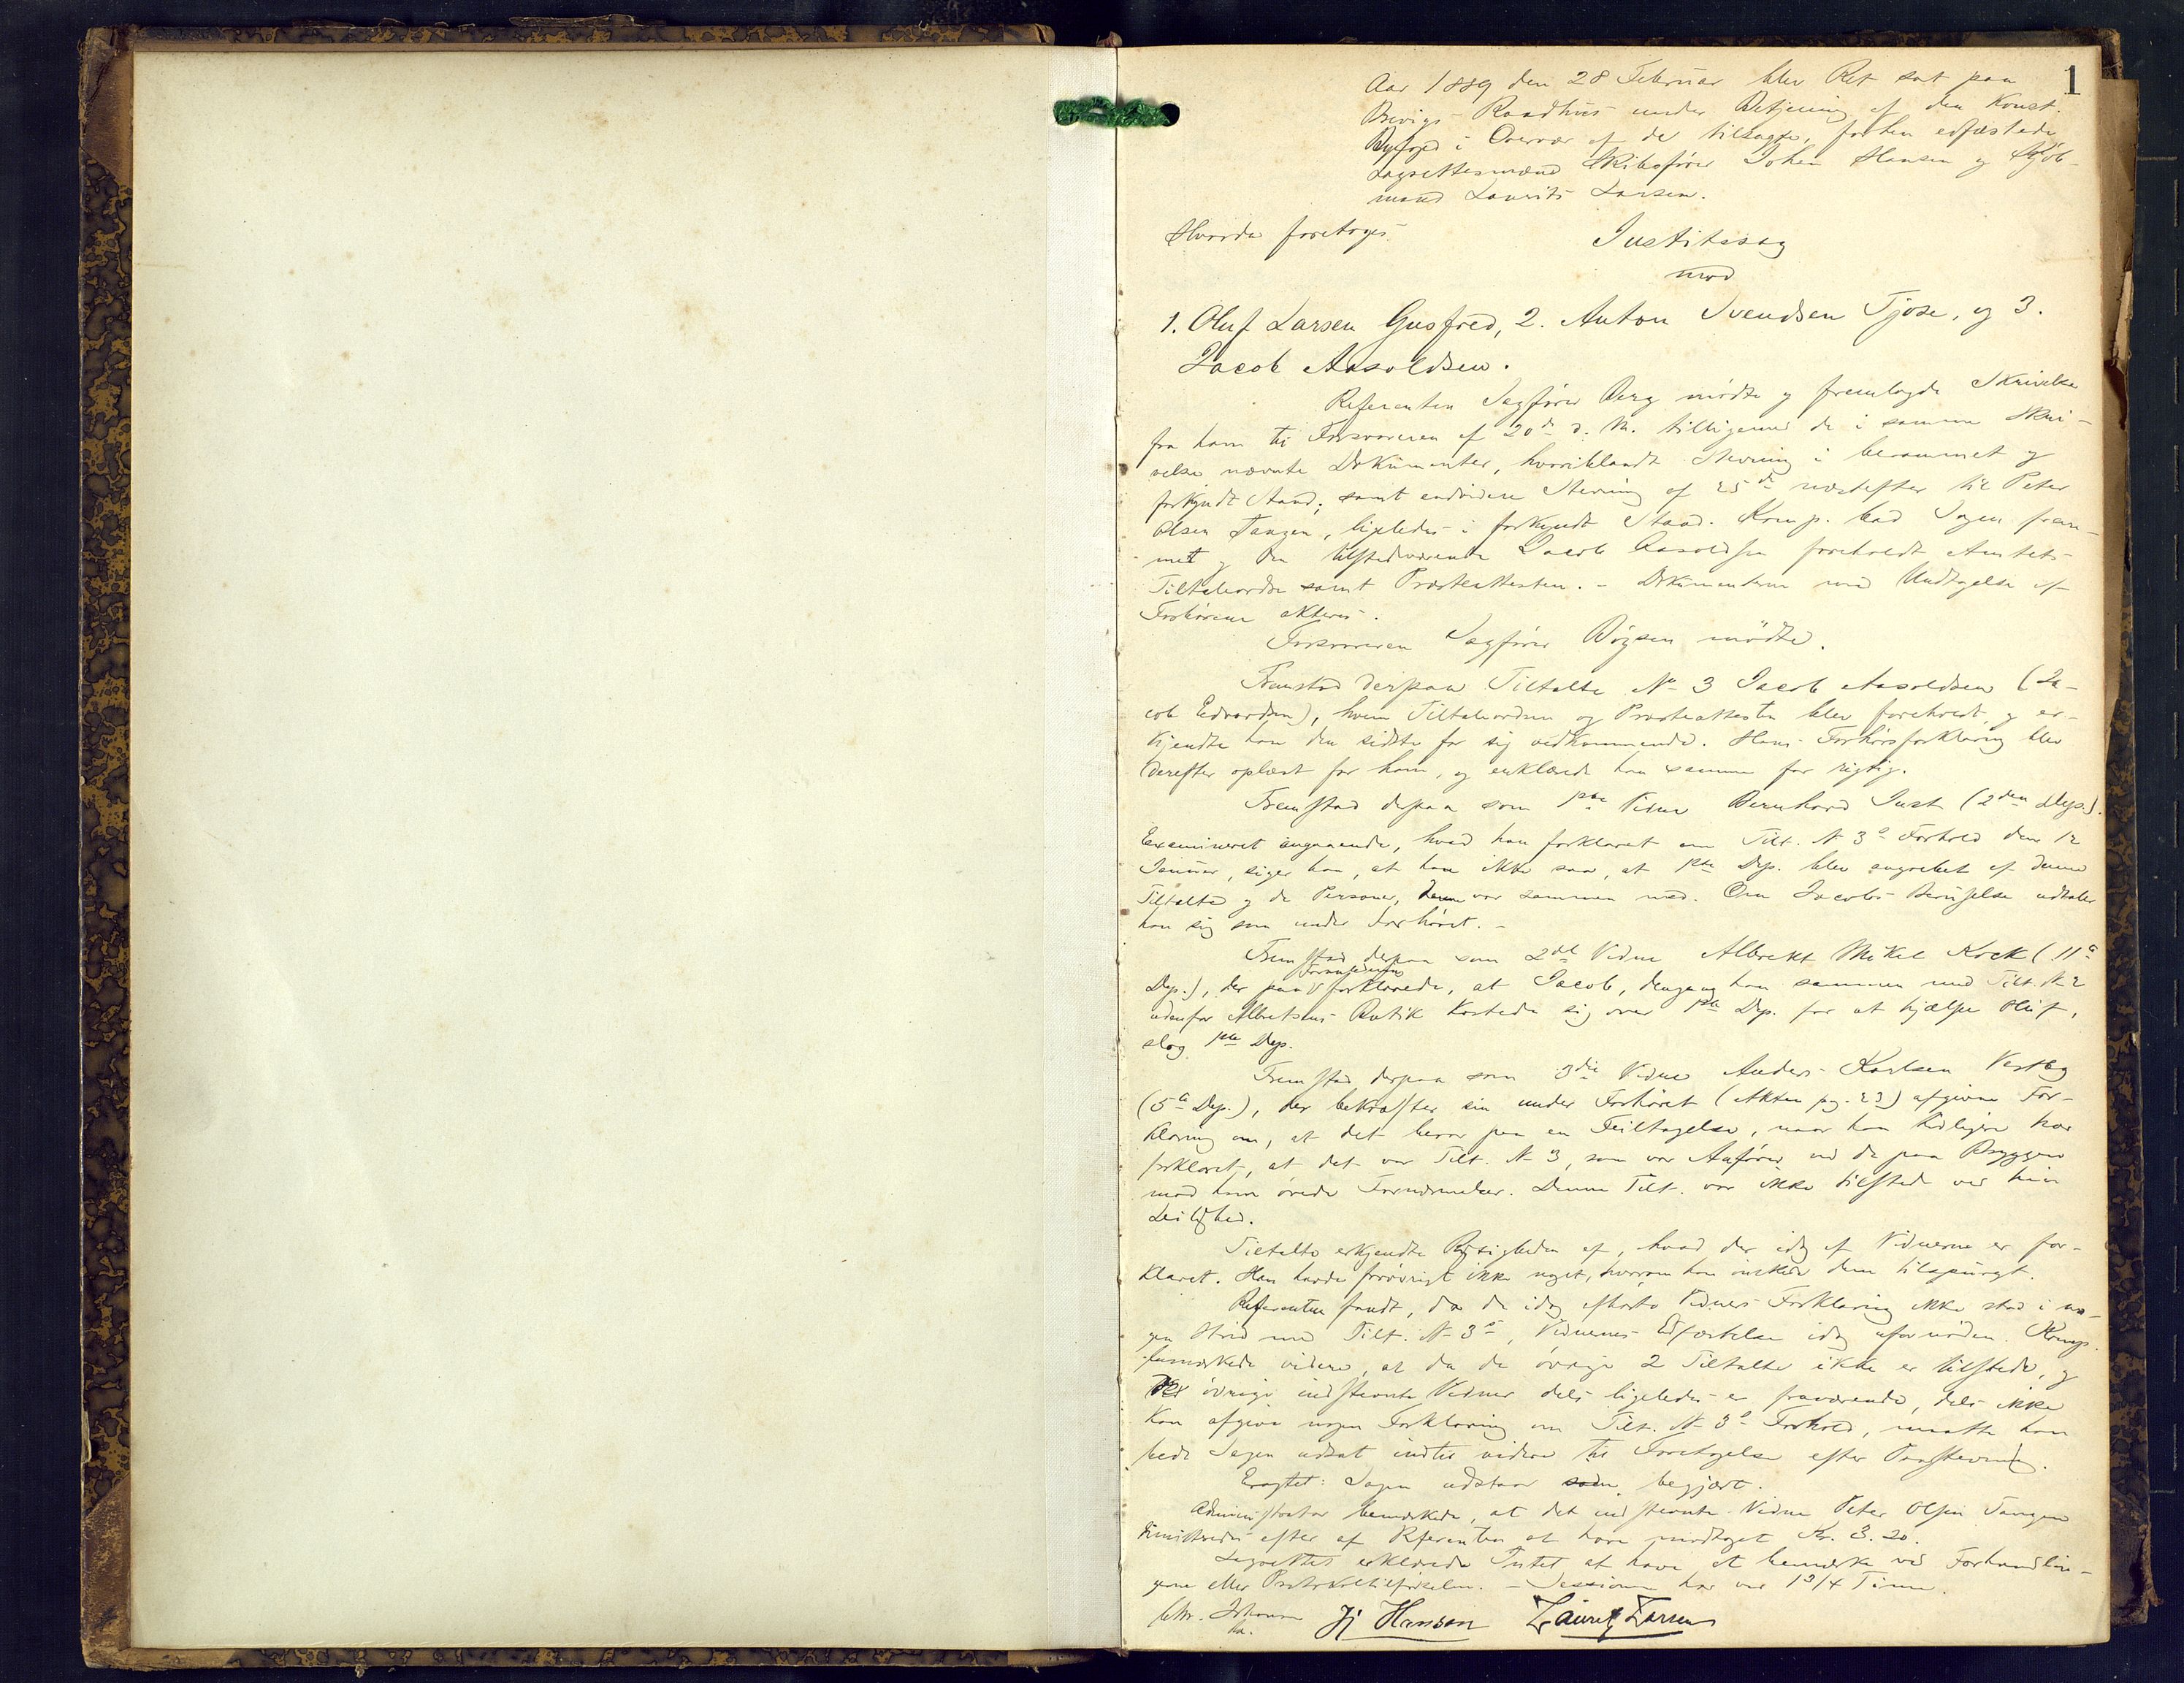 1
Aar 1889 den 28 Februar blev Ret sat paa
Brevigs Raadhus under Betjening af den Konst.
Byfoged i Overvær af de tilsagte, forhen edfæstede
Lagrettesmænd Skibsfører Johan Hansen og Kjøb-
mand Laurits Larsen.
Hvorda foretoges
Justitssag
mod
1. Oluf Larsen Gusfred, 2. Anton Svendsen Tjose, og 3.
Jacob Aasoldsen.
Referenten Sagfører Berg mødte og fremlagde Skrivelse
fra ham til Forsvareren af 20de d. M. tilligemed de i samme Skri-
velse nævnte Dokumenter, hvoriblandt Stevning i berammet og
forkyndt Stand; samt endvidere Stevning af 25de næstefter til Peter
Olsen Tangen, ligeledes i forkyndt Stand. Komp. bad Sagen frem-
met og den tilstedeværende Jacob Aasoldsen foreholdt Amtets
Tiltaleordre samt Præsteattesten. - Dokumenterne med Undtagelse af
Forhørene akteres.
Forsvareren Sagfører Böysen mödte.
Fremstod derpaa Tiltalte No 3 Jacob Aasoldsen (Ja-
cob Edvardsen), hvem Tiltaleordren og Præsteattesten blev foreholdt, og er-
kjendte han den sidste for sig vedkommende. Hans Forhørsforklaring blev
derefter oplæst for ham, og erklærede han samme for rigtig.
Fremstod derpaa som 1ste Vidne Bernhard Just (2den Dep.).
Examineret angaaende, hvad han forklaret om Tilt. N 3s Forhold den 12
Januar, siger han, at han ikke saa, at 1ste Dep. blev angrebet af denne
Tiltalte og de Personer, han var sammen med. Om Jacobs Beruselse udtaler
han sig som under Forhöret. -
Fremstod derpaa som 2det Vidne Albrekt Mikel Kock (11te
Dep.), der paa Foranledning forklarede, at Jacob, dengang han sammen med Tilt. N 2
udenfor Albretsens Butik kastede sig over 1ste Dep. for at hjælpe Oluf,
slog 1ste Dep.
Fremstod derpaa som 3die Vidne Anders Karlsen Vestby
(5te Dep.), der bekræfter sin under Forhöret (Akten pg. 23) afgivne For-
klaring om, at det beror paa en Feiltagelse, naar han tidligere har
forklaret, at det var Tilt. N 3, som var Anfører ved de paa Bryggen
mod ham övede Fornærmelser. Denne Tilt. var ikke tilstede ved hin
Leilighed.
Tiltalte erkjendte Rigtigheden af, hvad der idag af Vidnerne er for-
klaret. Han havde forövrigt ikke noget, hvorom han önskede dem tilspurgt.
Referenten fandt, da de idag afhørte Vidners Forklaring ikke stod i no-
gen Strid med Tilt. N 3s, Vidnernes Edfæstelse idag ufornöden. Komp.
bemærkede videre, at da de övrige 2 Tiltalte ikke er tilstede, og
de övrige indstevnte Vidner dels ligeledes er fraværende, dels ikke
kan afgive nogen Forklaring om Tilt. N 3s Forhold, maatte han
bede Sagen udsat indtil videre til Foretagelse efter Paastevning.
Eragtet: Sagen udstaar som begjært.
Administrator bemærkede, at det indstevnte Vidne Peter Olsen Tangen
dimitteredes efter af Referenten at have modtaget Kr. 3.20.
Lagrettet erklærede Intet at have at bemærke ved Forhandlin-
gene eller Protokoltilførselen. - Sessionen har var 1 3/4 Time.
Chr. Johansen
J Hansen Laurits Larsen